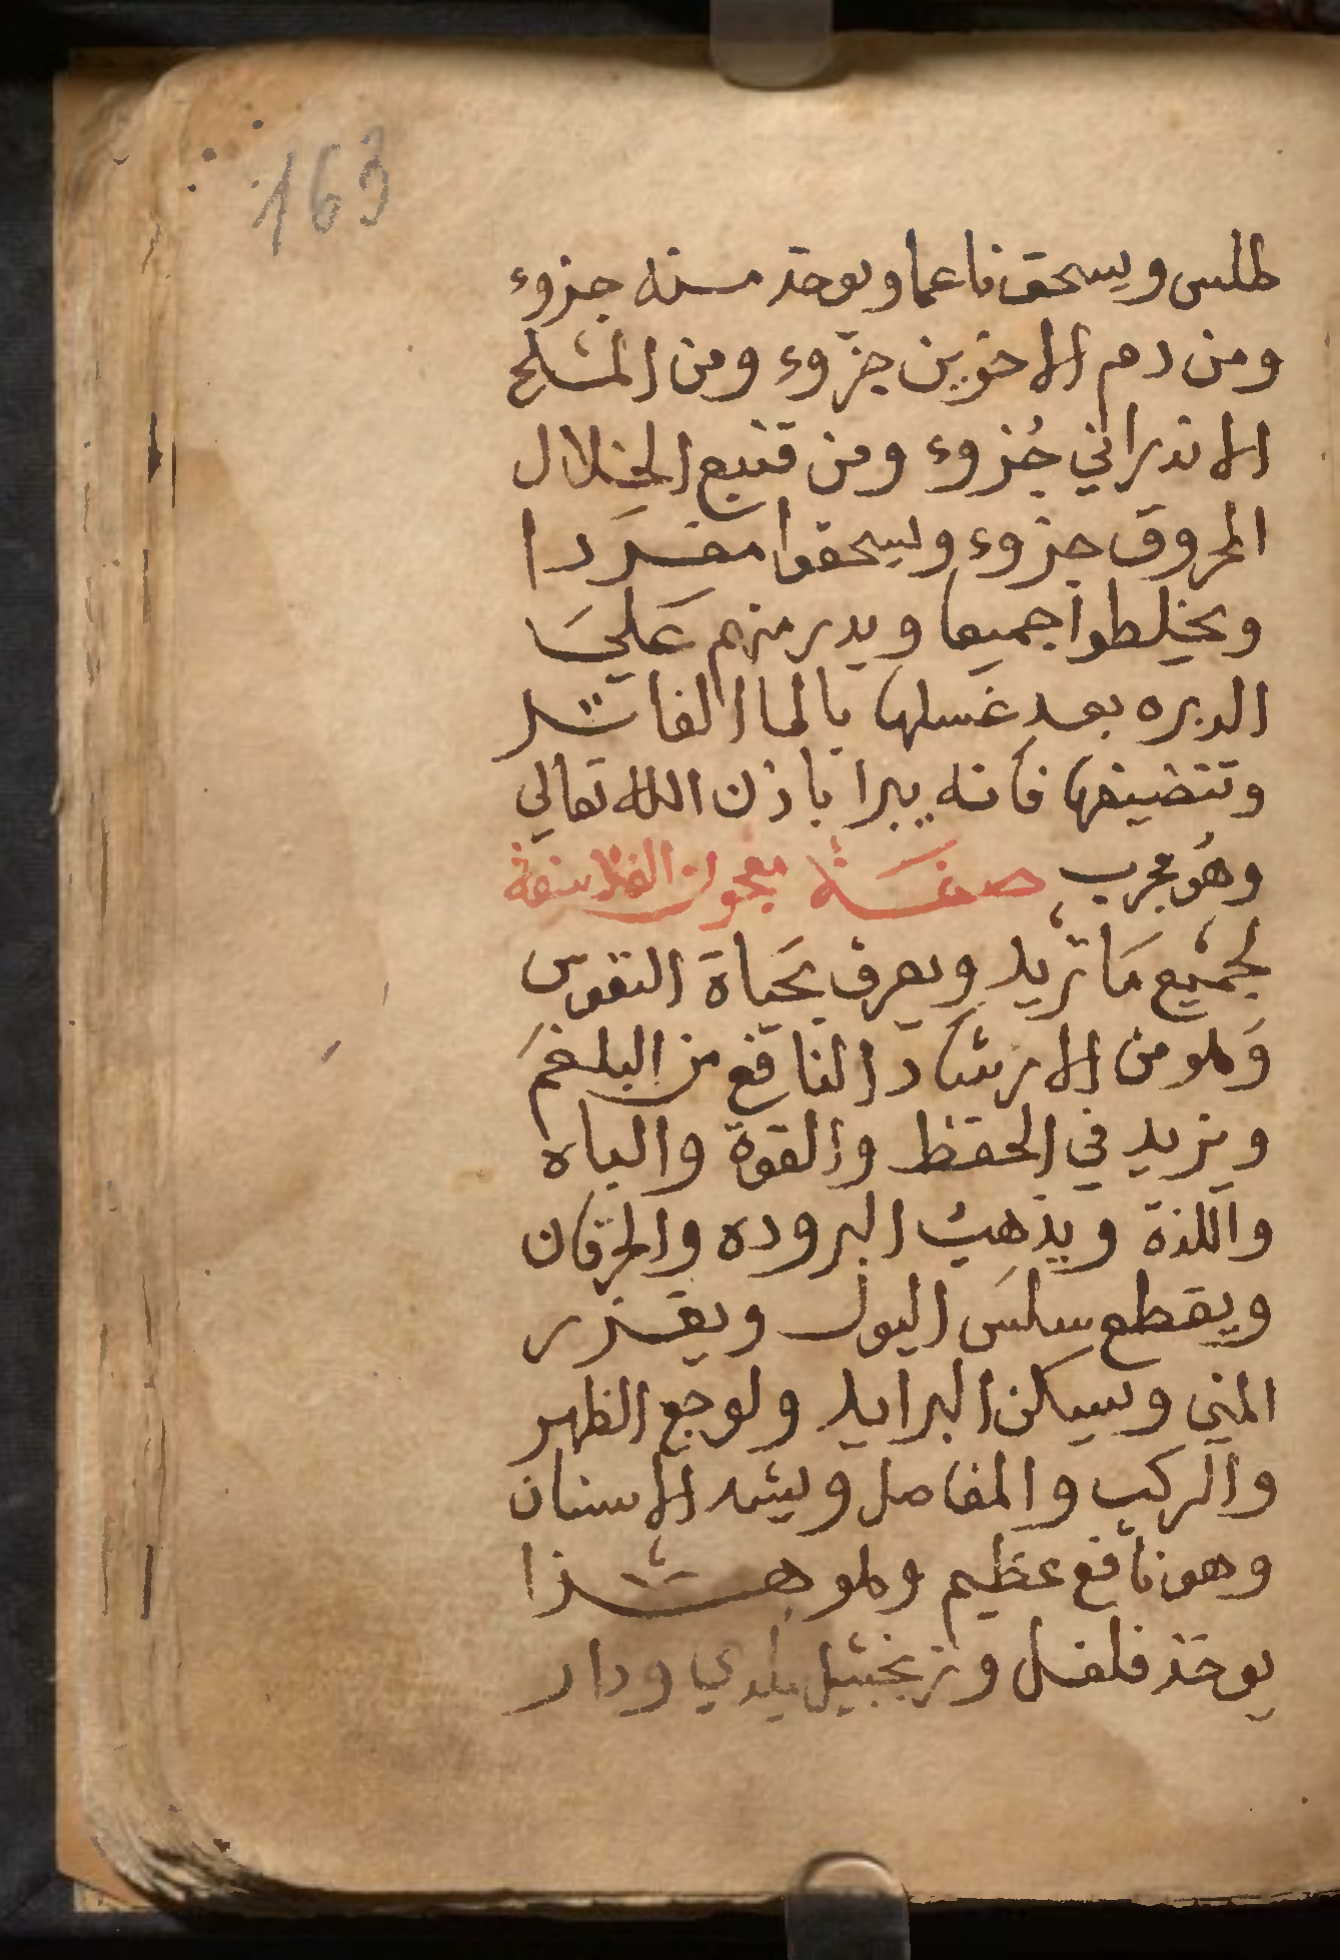 163
طلس ويسحق ناعما ويوخذ منه جزوء
ومن دم الاخوين جزوء ومن الملح
الاندراني جُزوء ومن قنبع الخلال
المروق جزوء ويسحقوا مفردا
ويخلطوا جميعا ويدر منهم عَليَ
الدبره بعد غسلها بالما الفاتر
وتنضيفها فانه يبرا باذن الله تعالي
وهُو مجرب صفة معجون الفلاسفة
لجميع مَا تريد ويعرف بحَياة النفوس
وَهو من الارشاد النافع من البلغم
ويزيد في الحفظ والقوة والباه
واللذة ويذهب البروده والخرفان
ويقطع سلسَ البول ويغزر
المني ويسكن البرايد ولوجع الظهر
والركب والمفاصل ويشد الاسنان
وهو نافع عظيم وهو هذا
يوخذ فلفل وزنجبيل بلدي ودار